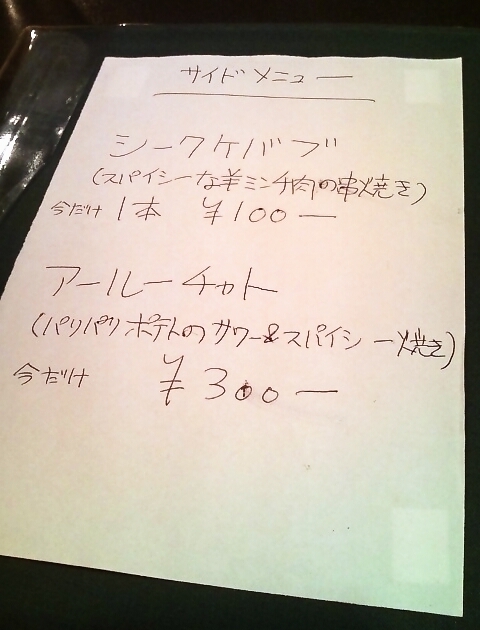 サイドメニュー
シークケバブ
(スパイシーな羊ミンチ肉の串焼き)
今だけ 1本 ¥100ー
アールーチャト
(パリパリポテトのサワー&スパイシー焼き)
今だけ ¥300ー